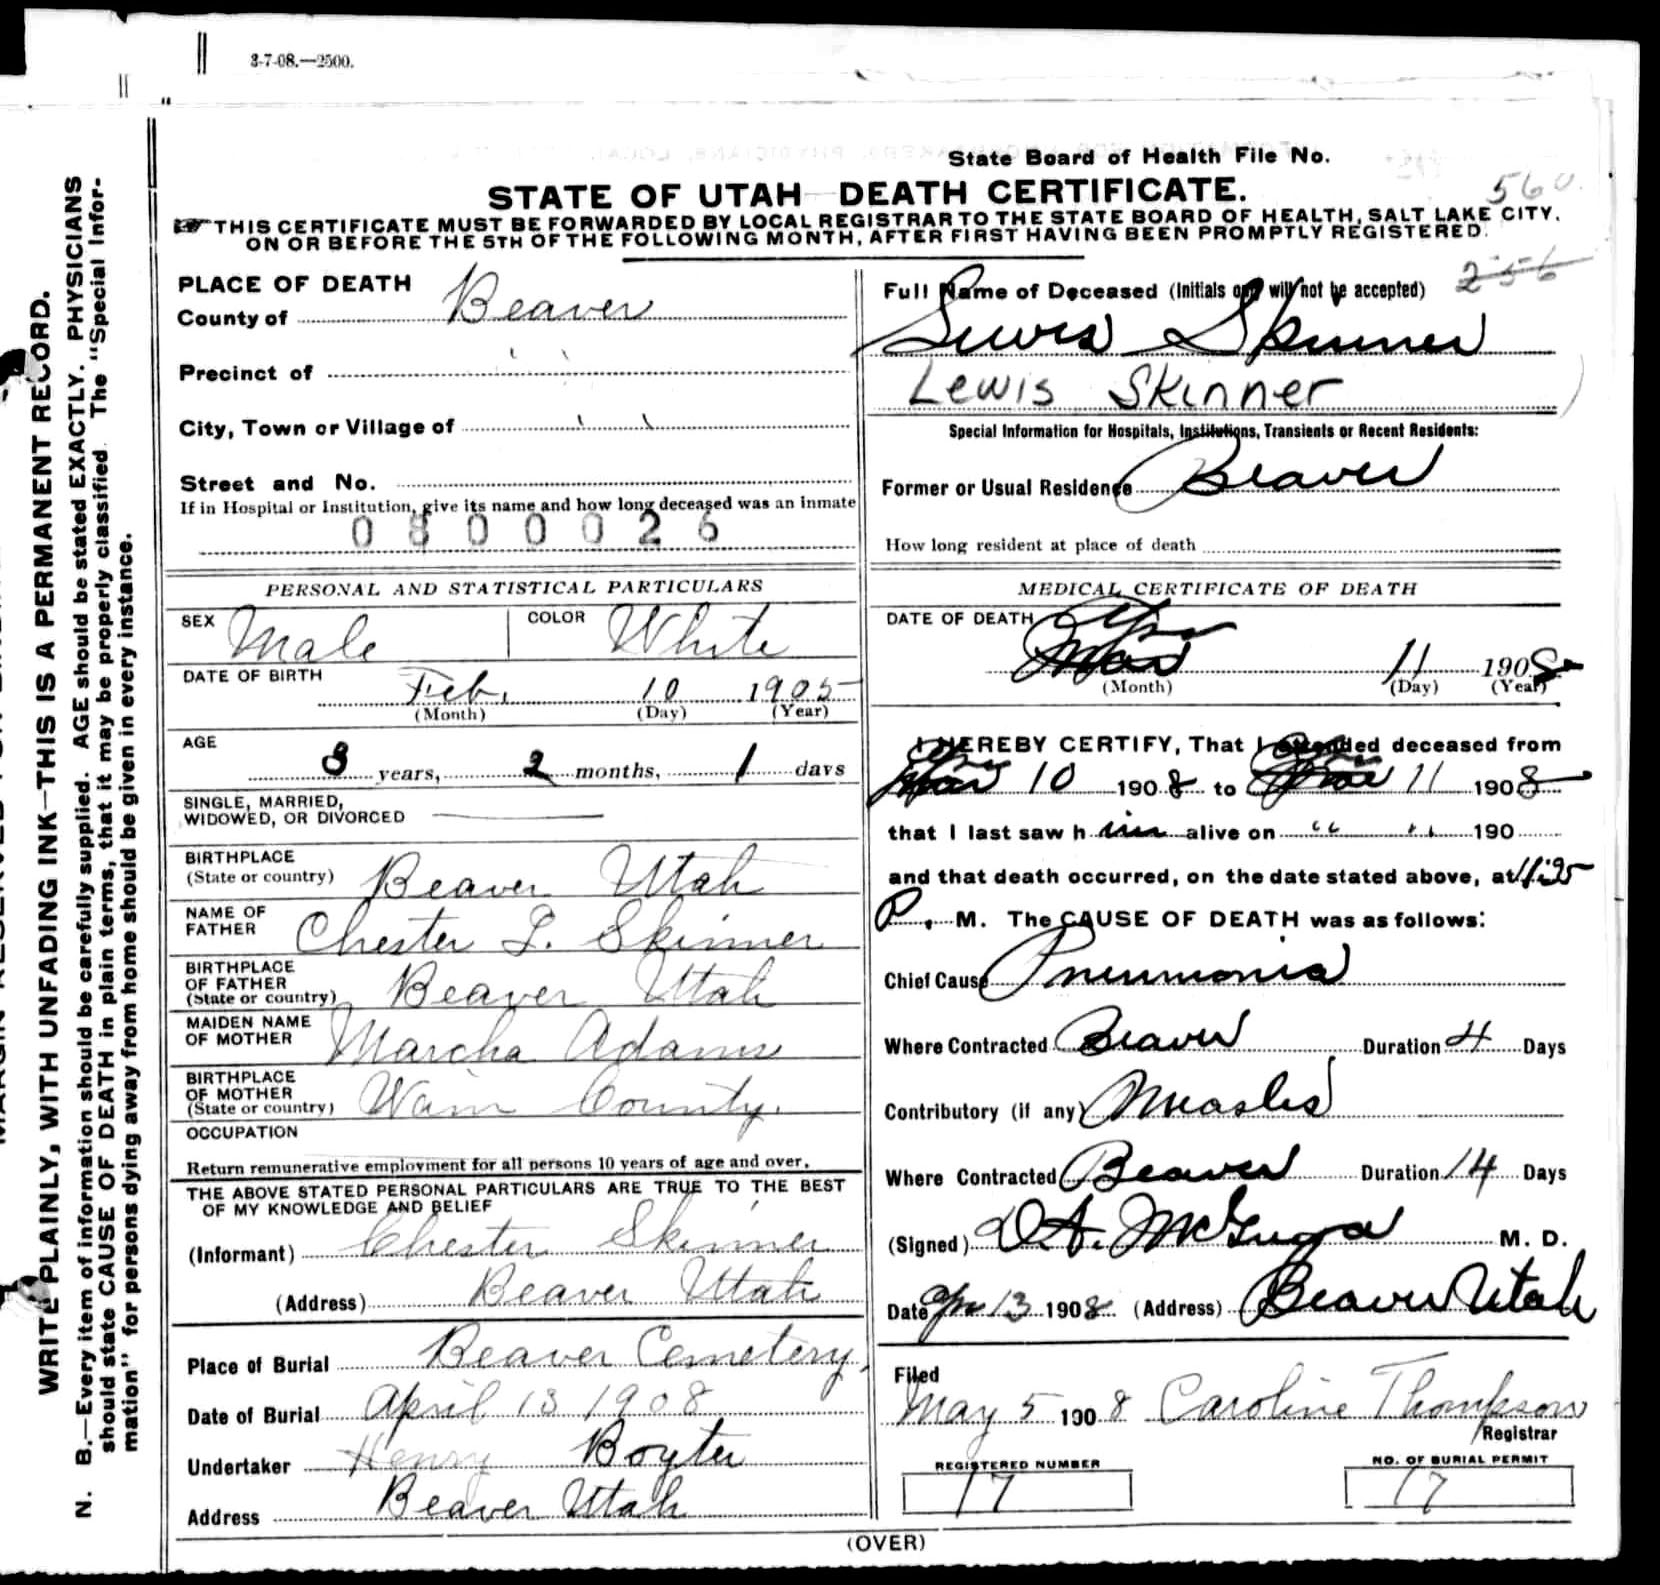 3-7-08.—2500.
State Board of Health File No.
560.
STATE OF UTAH DEATH CERTIFICATE.
THIS CERTIFICATE MUST BE FORWARDED BY LOCAL REGISTRAR TO THE STATE BOARD OF HEALTH, SALT LAKE CITY,
ON OR BEFORE THE 5TH OF THE FOLLOWING MONTH, AFTER FIRST HAVING BEEN PROMPTLY REGISTERED.
WRITE PLAINLY, WITH UNFADING INK—THIS IS A PERMANENT RECORD.
N. B.—Every item of information should be carefully supplied. AGE should be stated EXACTLY. PHYSICIANS
should state CAUSE OF DEATH in plain terms, that it may be properly classified. The "Special Infor-
mation" for persons dying away from home should be given in every instance.
PLACE OF DEATH
County of Beaver
Precinct of " "
City, Town or Village of " "
Street and No.
If in Hospital or Institution, give its name and how long deceased was an inmate
0800026
PERSONAL AND STATISTICAL PARTICULARS
SEX Male COLOR White
DATE OF BIRTH
Feb. 10 1905
(Month) (Day) (Year)
AGE
3 years, 2 months, 1 days
SINGLE, MARRIED,
WIDOWED, OR DIVORCED
BIRTHPLACE
(State or country) Beaver Utah
NAME OF
FATHER Chester L. Skinner
BIRTHPLACE
OF FATHER
(State or country) Beaver Utah
MAIDEN NAME
OF MOTHER Marcha Adams
BIRTHPLACE
OF MOTHER
(State or country) Wain County.
OCCUPATION
Return remunerative employment for all persons 10 years of age and over.
THE ABOVE STATED PERSONAL PARTICULARS ARE TRUE TO THE BEST
OF MY KNOWLEDGE AND BELIEF
(Informant) Chester Skinner
(Address) Beaver Utah
Place of Burial Beaver Cemetery.
Date of Burial April 13 1908
Undertaker Henry Boyter
Address Beaver Utah
256
Full Name of Deceased (Initials only will not be accepted)
Lewis Skinner
Lewis Skinner
Special Information for Hospitals, Institutions, Transients or Recent Residents:
Former or Usual Residence Beaver
How long resident at place of death
MEDICAL CERTIFICATE OF DEATH
DATE OF DEATH
Apr
Mar 11 1908
(Month) (Day) (Year)
I HEREBY CERTIFY, That I attended deceased from
Mar 10 1908 to Mar 11 1908
that I last saw him alive on " " 190
and that death occurred, on the date stated above, at 11:25
P. M. The CAUSE OF DEATH was as follows:
Chief Cause Pneumonia
Where Contracted Beaver Duration 4 Days
Contributory (if any) Measles
Where Contracted Beaver Duration 14 Days
(Signed) M. D.
Date Apr 13 1908 (Address) Beaver Utah
Filed
May 5 1908 Caroline Thompson
Registrar
REGISTERED NUMBER
17
NO. OF BURIAL PERMIT
17
(OVER)